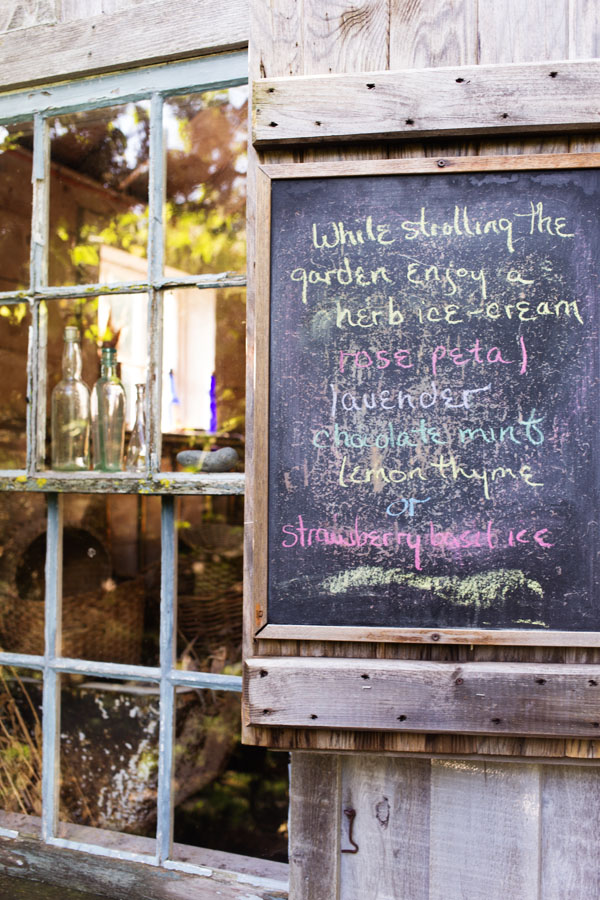 While strolling the
garden enjoy a
herb ice-cream
rose petal
lavender
chocolate mint
lemon thyme
or
strawberry basil ice